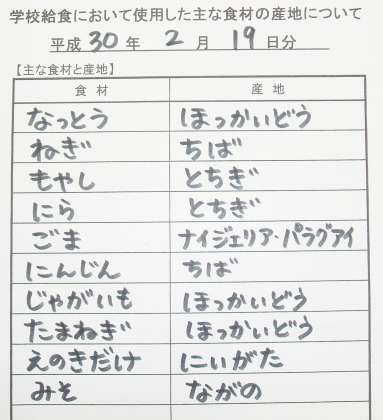 学校給食において使用した主な食材の産地について
平成 30 年 2 月 19 日分
【主な食材と産地】
食材 産地
なっとう ほっかいどう
ねぎ ちば
もやし とちぎ
にら とちぎ
ごま ナイジェリア・パラグアイ
にんじん ちば
じゃがいも ほっかいどう
たまねぎ ほっかいどう
えのきだけ にいがた
みそ ながの